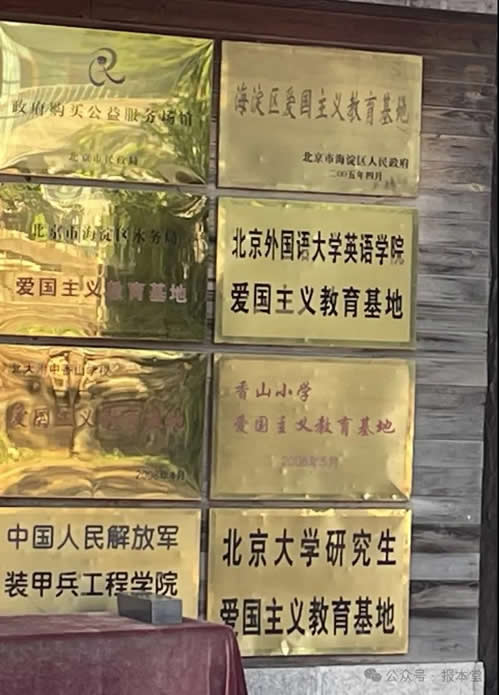 政府购买公益服务场馆
北京市民政局
海淀区爱国主义教育基地
北京市海淀区人民政府
二〇〇五年四月
北京市海淀区水务局
爱国主义教育基地
北京外国语大学英语学院
爱国主义教育基地
北大附中香山学校
爱国主义教育基地
2008年4月
香山小学
爱国主义教育基地
2008年5月
中国人民解放军
装甲兵工程学院
北京大学研究生
爱国主义教育基地
公众号：报本堂